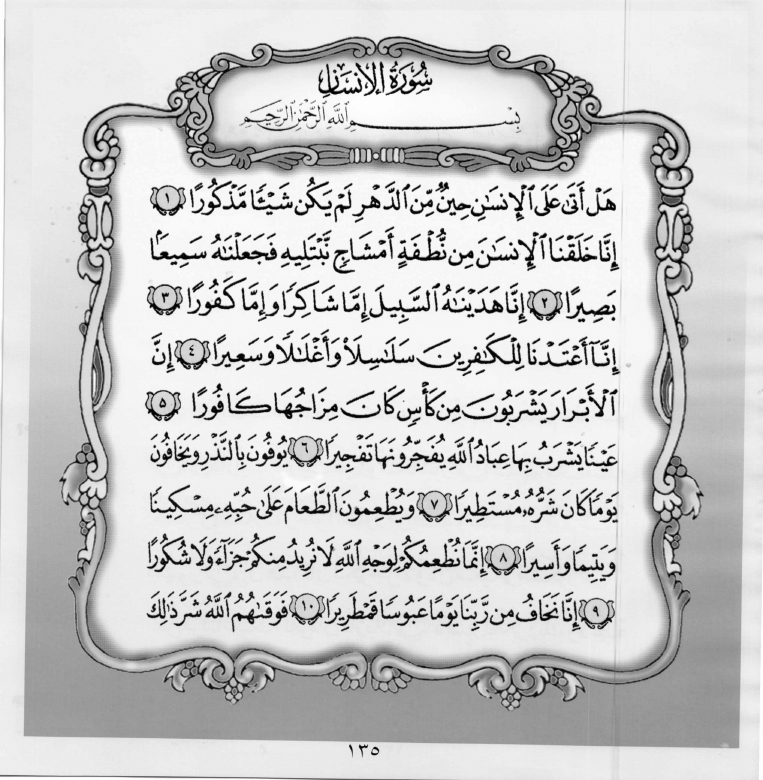 سُورَةُ الإِنسَانِ
بِسْمِ اللَّهِ الرَّحْمَٰنِ الرَّحِيمِ
هَلْ أَتَىٰ عَلَى ٱلْإِنسَٰنِ حِينٌ مِّنَ ٱلدَّهْرِ لَمْ يَكُن شَيْـًٔا مَّذْكُورًا ١
إِنَّا خَلَقْنَا ٱلْإِنسَٰنَ مِن نُّطْفَةٍ أَمْشَاجٍ نَّبْتَلِيهِ فَجَعَلْنَٰهُ سَمِيعًۢا
بَصِيرًا ٢ إِنَّا هَدَيْنَٰهُ ٱلسَّبِيلَ إِمَّا شَاكِرًا وَإِمَّا كَفُورًا ٣
إِنَّآ أَعْتَدْنَا لِلْكَٰفِرِينَ سَلَٰسِلَا۟ وَأَغْلَٰلًا وَسَعِيرًا ٤ إِنَّ
ٱلْأَبْرَارَ يَشْرَبُونَ مِن كَأْسٍ كَانَ مِزَاجُهَا كَافُورًا ٥
عَيْنًا يَشْرَبُ بِهَا عِبَادُ ٱللَّهِ يُفَجِّرُونَهَا تَفْجِيرًا ٦ يُوفُونَ بِٱلنَّذْرِ وَيَخَافُونَ
يَوْمًا كَانَ شَرُّهُۥ مُسْتَطِيرًا ٧ وَيُطْعِمُونَ ٱلطَّعَامَ عَلَىٰ حُبِّهِۦ مِسْكِينًا
وَيَتِيمًا وَأَسِيرًا ٨ إِنَّمَا نُطْعِمُكُمْ لِوَجْهِ ٱللَّهِ لَا نُرِيدُ مِنكُمْ جَزَآءً وَلَا شُكُورًا
٩ إِنَّا نَخَافُ مِن رَّبِّنَا يَوْمًا عَبُوسًا قَمْطَرِيرًا ١٠ فَوَقَىٰهُمُ ٱللَّهُ شَرَّ ذَٰلِكَ
١٣٥